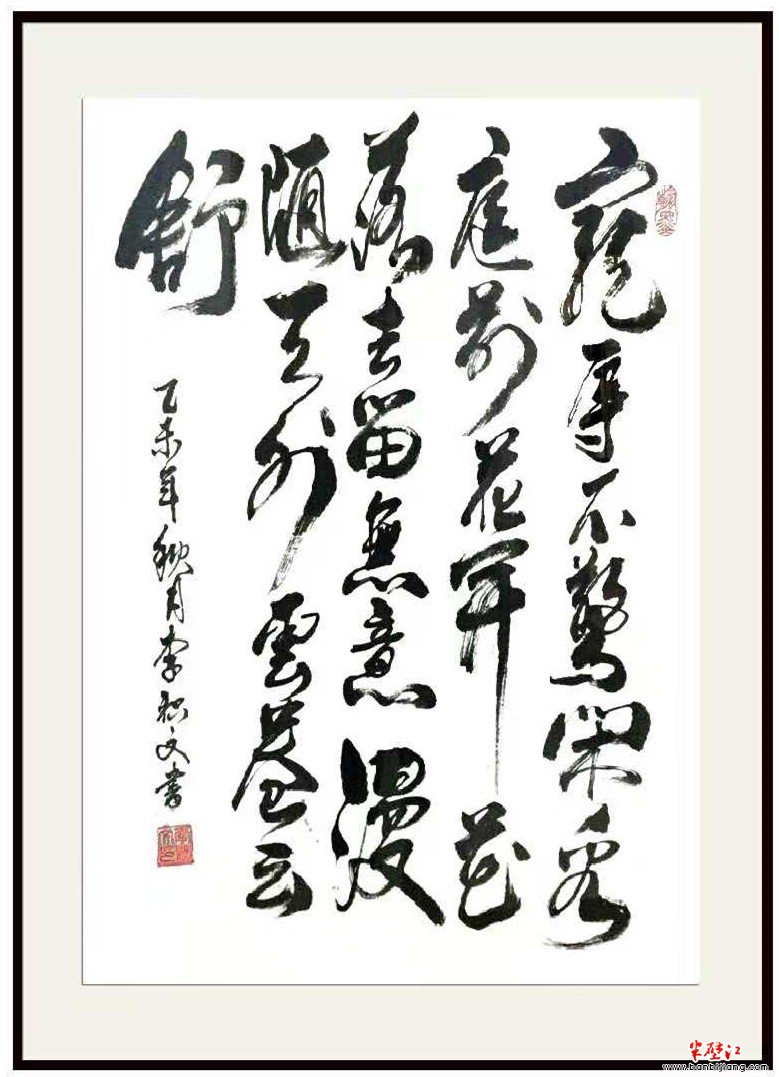 寵辱不驚閑看
庭前花開花
落去留無意漫
隨天外雲卷云
舒
乙未年秋月李智文書
半壁江
www.banbijiang.com